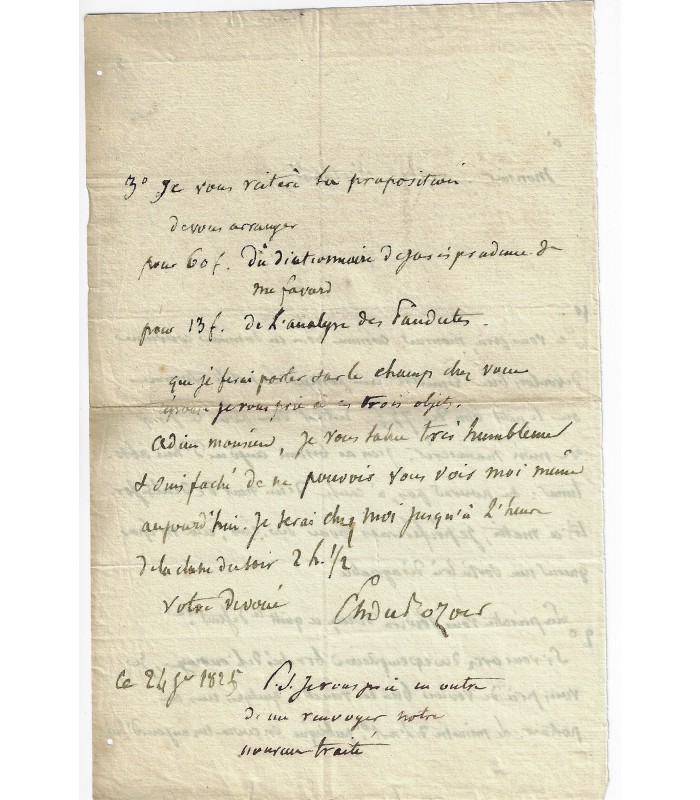 3° Je vous réitère la proposition
de vous arranger
pour 60 f. du dictionnaire de jurisprudence de
me favard
pour 13 f. de L'analyse des Pandectes.
que je ferai porter sur le champ chez vous
je vous prie à ces trois objets.
adieu monsieur, je vous salue très humblement
& suis faché de ne pouvoir vous voir moi même
aujourd'hui. Je serai chez moi jusqu'à L'heure
de la classe du soir 2 h. 1/2
votre dévoué Ch du Rozoir
Ce 24 1825 P.S. Je vous prie en outre
de me renvoyer notre
nouveau traité
Monsieur